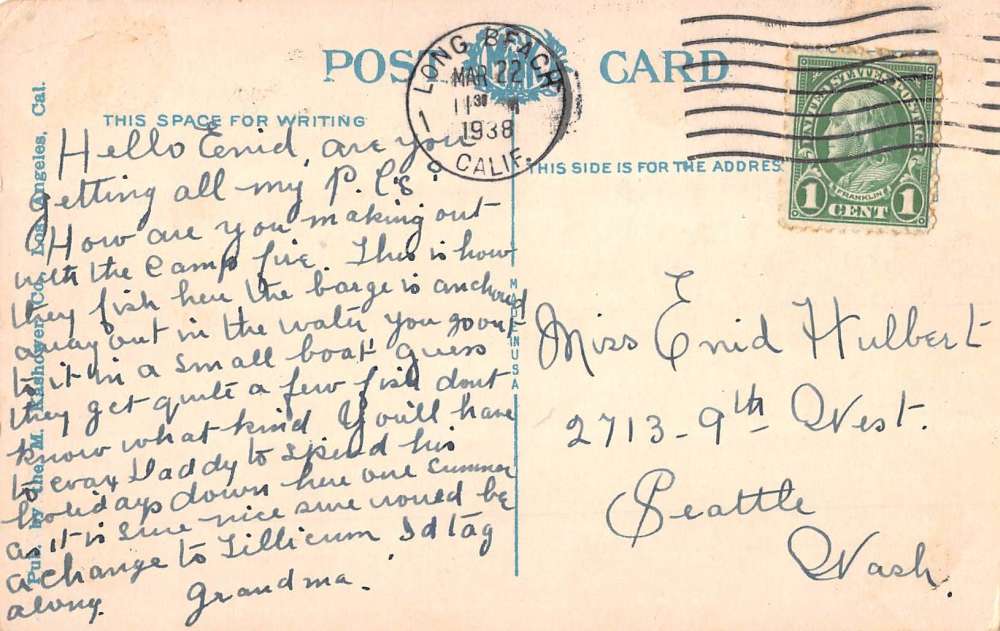 POST CARD
LONG BEACH
MAR 22
1938
CALIF.
1
THIS SPACE FOR WRITING
THIS SIDE IS FOR THE ADDRES
UNITED STATES POSTAGE
FRANKLIN
1 CENT 1
Pub. by the M. Kashower Co., Los Angeles, Cal.
MADE IN USA
Hello Enid, are you
getting all my P. C's
How are you making out
with the Camp fire. This is how
they fish here the barge is anchored
away out in the water you go out
to it in a small boat guess
they get quite a few fish dont
know what kind You'll have
to coax Daddy to spend his
holidays down here one summer
as it is sure nice sure would be
a change to Tillicum I'd tag
along. Grandma.
Miss Enid Hulbert
2713 - 9th West.
Seattle
Wash.